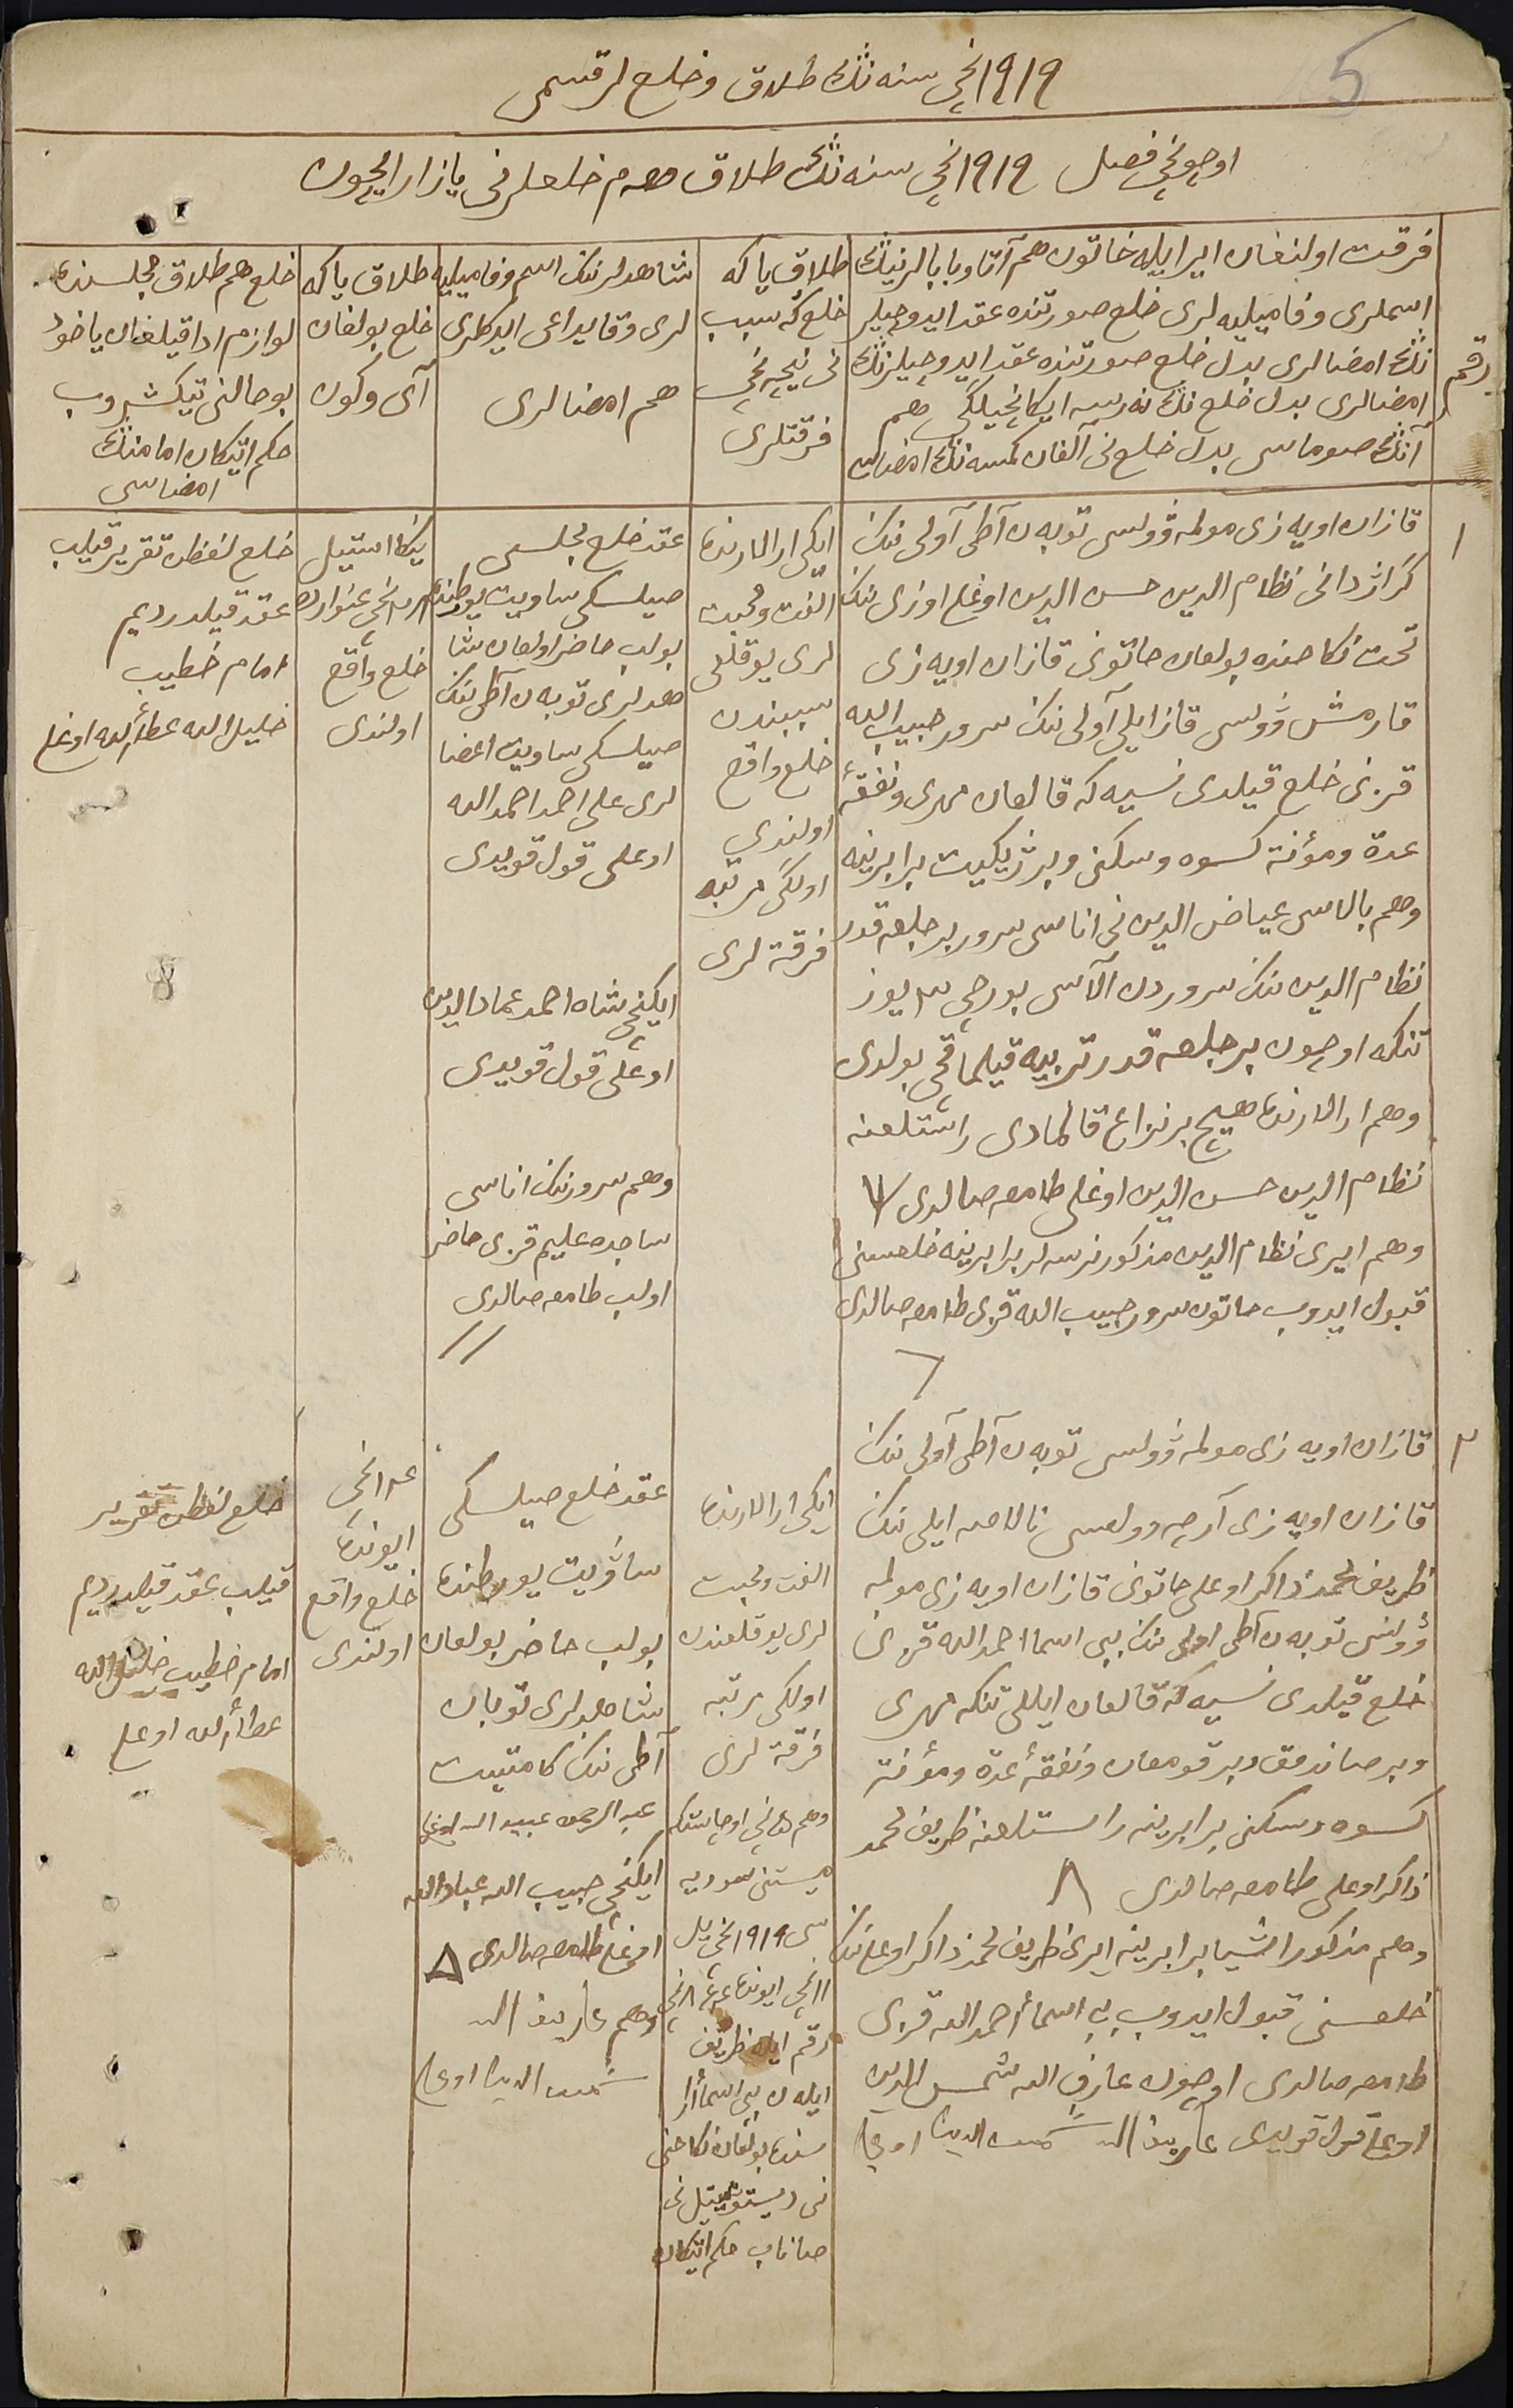 5
١٩١٩نچی سنه ننڭ طلاق و خلع لر قسمی
اوچونچی فصل ١٩١٩نچی سنه ننڭ طلاق هم خلعلرنی یازار ایچون
رقم
فرقت اولنغان ایر ایله خاتون هم آتا و بابالرنینڭ
اسملری و فامیلیه لری خلع صورتنده عقد ایدوچیلر
ننڭ امضالری بدل خلع صورتنده عقد ایدوچیلرننڭ
امضالری بدل خلع ننڭ نه نرسه ایکانچیلگی هم
آننڭ صوماسی بدل خلع نی آلغان کمسه ننڭ امضاسی
طلاق یا که
خلع گه سبب
نی نیچه نچی
فرقتلری
شاهدلر ننک اسم و فامیلیه
لری و قایداعی ایدکلری
هم امضالری
طلاق یا که
خلع بولغان
آی و کون
خلع هم طلاق مجلسنده
لوازم ادا قیلغان یا خود
بو حالنی تیکشروب
حکم ایتکان امامننڭ
امضاسی
١
قازان اویه زی مولمه ڤولسی توبه ن آطی آولی ننک
گراژدانی نظام الدین حسن الدین اوغلی اوزی ننک
تحت نکاحنده بولغان خاتونی قازان اویه زی
قارمش ڤولسی قازایلی آولی ننک سرور حبیب الله
قزنی خلع قیلدی نسیه که قالغان مهری و نفقهٔ
عدة و مؤنة کسوه و سکنی و بر ژیکیت برابرینه
وهم بالاسی عیاض الدین نی اناسی سرور بر جلعه قدر
نظام الدین ننک سروردن آلاسی بورچی ٣ یوز
تنکه اوچون بر جلعه قدر تربیه قیلماقچی بولدی
وهم ارالارنده هیچ بر نزاع قالمادی راشتلغنه
نظام الدین حسن الدین اوغلی طامغه صالدی
وهم ایری نظام الدین مذکور نرسه لر برابرینه خلعسنی
قبول ایدوب خاتون سرور حبیب الله قزی طامغه صالدی
ایکی ارالارنده
الفت و محبت
لری یوقلغی
سببندن
خلع واقع
اولندی
اولگی مرتبه
فرقة لری
عقد خلع مجلسی
صیلسکی ساویت یورطنده
بولب حاضر اولغان شا
هدلری توبه ن آطی ننک
صیلسکی ساویت اعضا
لری علی احمد احمد الله
اوغلی قول قویدی
ایکنچی شاه احمد عماد الدین
اوغلی قول قویدی
وهم سرورننک اناسی
ساجده علیم قزی حاضر
اولب طامغه صالدی
یکا استیل
نچی غنوارده
خلع واقع
اولندی
خلع لفظن تقریر قیلب
عقد قیلدردیم
امام خطیب
خلیل الله عطاءالله اوغلی
٢
قازان اویه زی مولمه ڤولسی توبه ن آطی آولی ننک
قازان اویه زی آرچه وولسی نالاصه ایلی ننک
ظریف محمد ذاکر اوغلی خاتونی قازان اویه زی مولمه
ڤولسی توبه ن آطی اولی ننک بیبی اسما احمد الله قزنی
خلع قیلدی نسیه گه قالغان ایللی تنکه مهری
و بر صاندق و بر قومغان و نفقهٔ عدة و مؤنة
کسوه و سکنی برابرینه راستلغنه ظریف محمد
ذاکر اوغلی طامغه صالدی
وهم مذکور اشیا برابرینه ایری ظریف محمد ذاکر اوغلی ننک
خلعسنی قبول ایدوب بیبی اسماء احمد الله قزی
طامغه صالدی اوچون عارف الله شمس الدین
اوغلی قول قویدی عارف الله شمس الدین اوغلی
ایکی ارالارنده
الفت و محبت
لری یوقلغندن
اولکی مرتبه
فرقة لری
وهم نچی اوچاستکه
میستنی سودیه
سی ١٩١٩نچی یل
١١نچی ایونده نچی
رقم ایله ظریف
ایله ن بیبی اسماء ارا
سنده بولغان نکاحنی
نی دیستویتیلنی
صاناب حکم ایتکان
عقد خلع صیلسکی
ساوویت یورطنده
بولب حاضر بولغان
شاهدلری توبان
آطی ننک کامتیت
عبد الرحمن عبید الله اوغلی
ایکنچی حبیب الله عباد الله
اوغلی طامغه صالدی
وهم عارف الله
شمس الدین اوغلی
نچی
ایونده
خلع واقع
اولندی
خلع لفظن تقریر
قیلب عقد قیلدردیم
امام خطیب خلیل الله
عطاءالله اوغلی